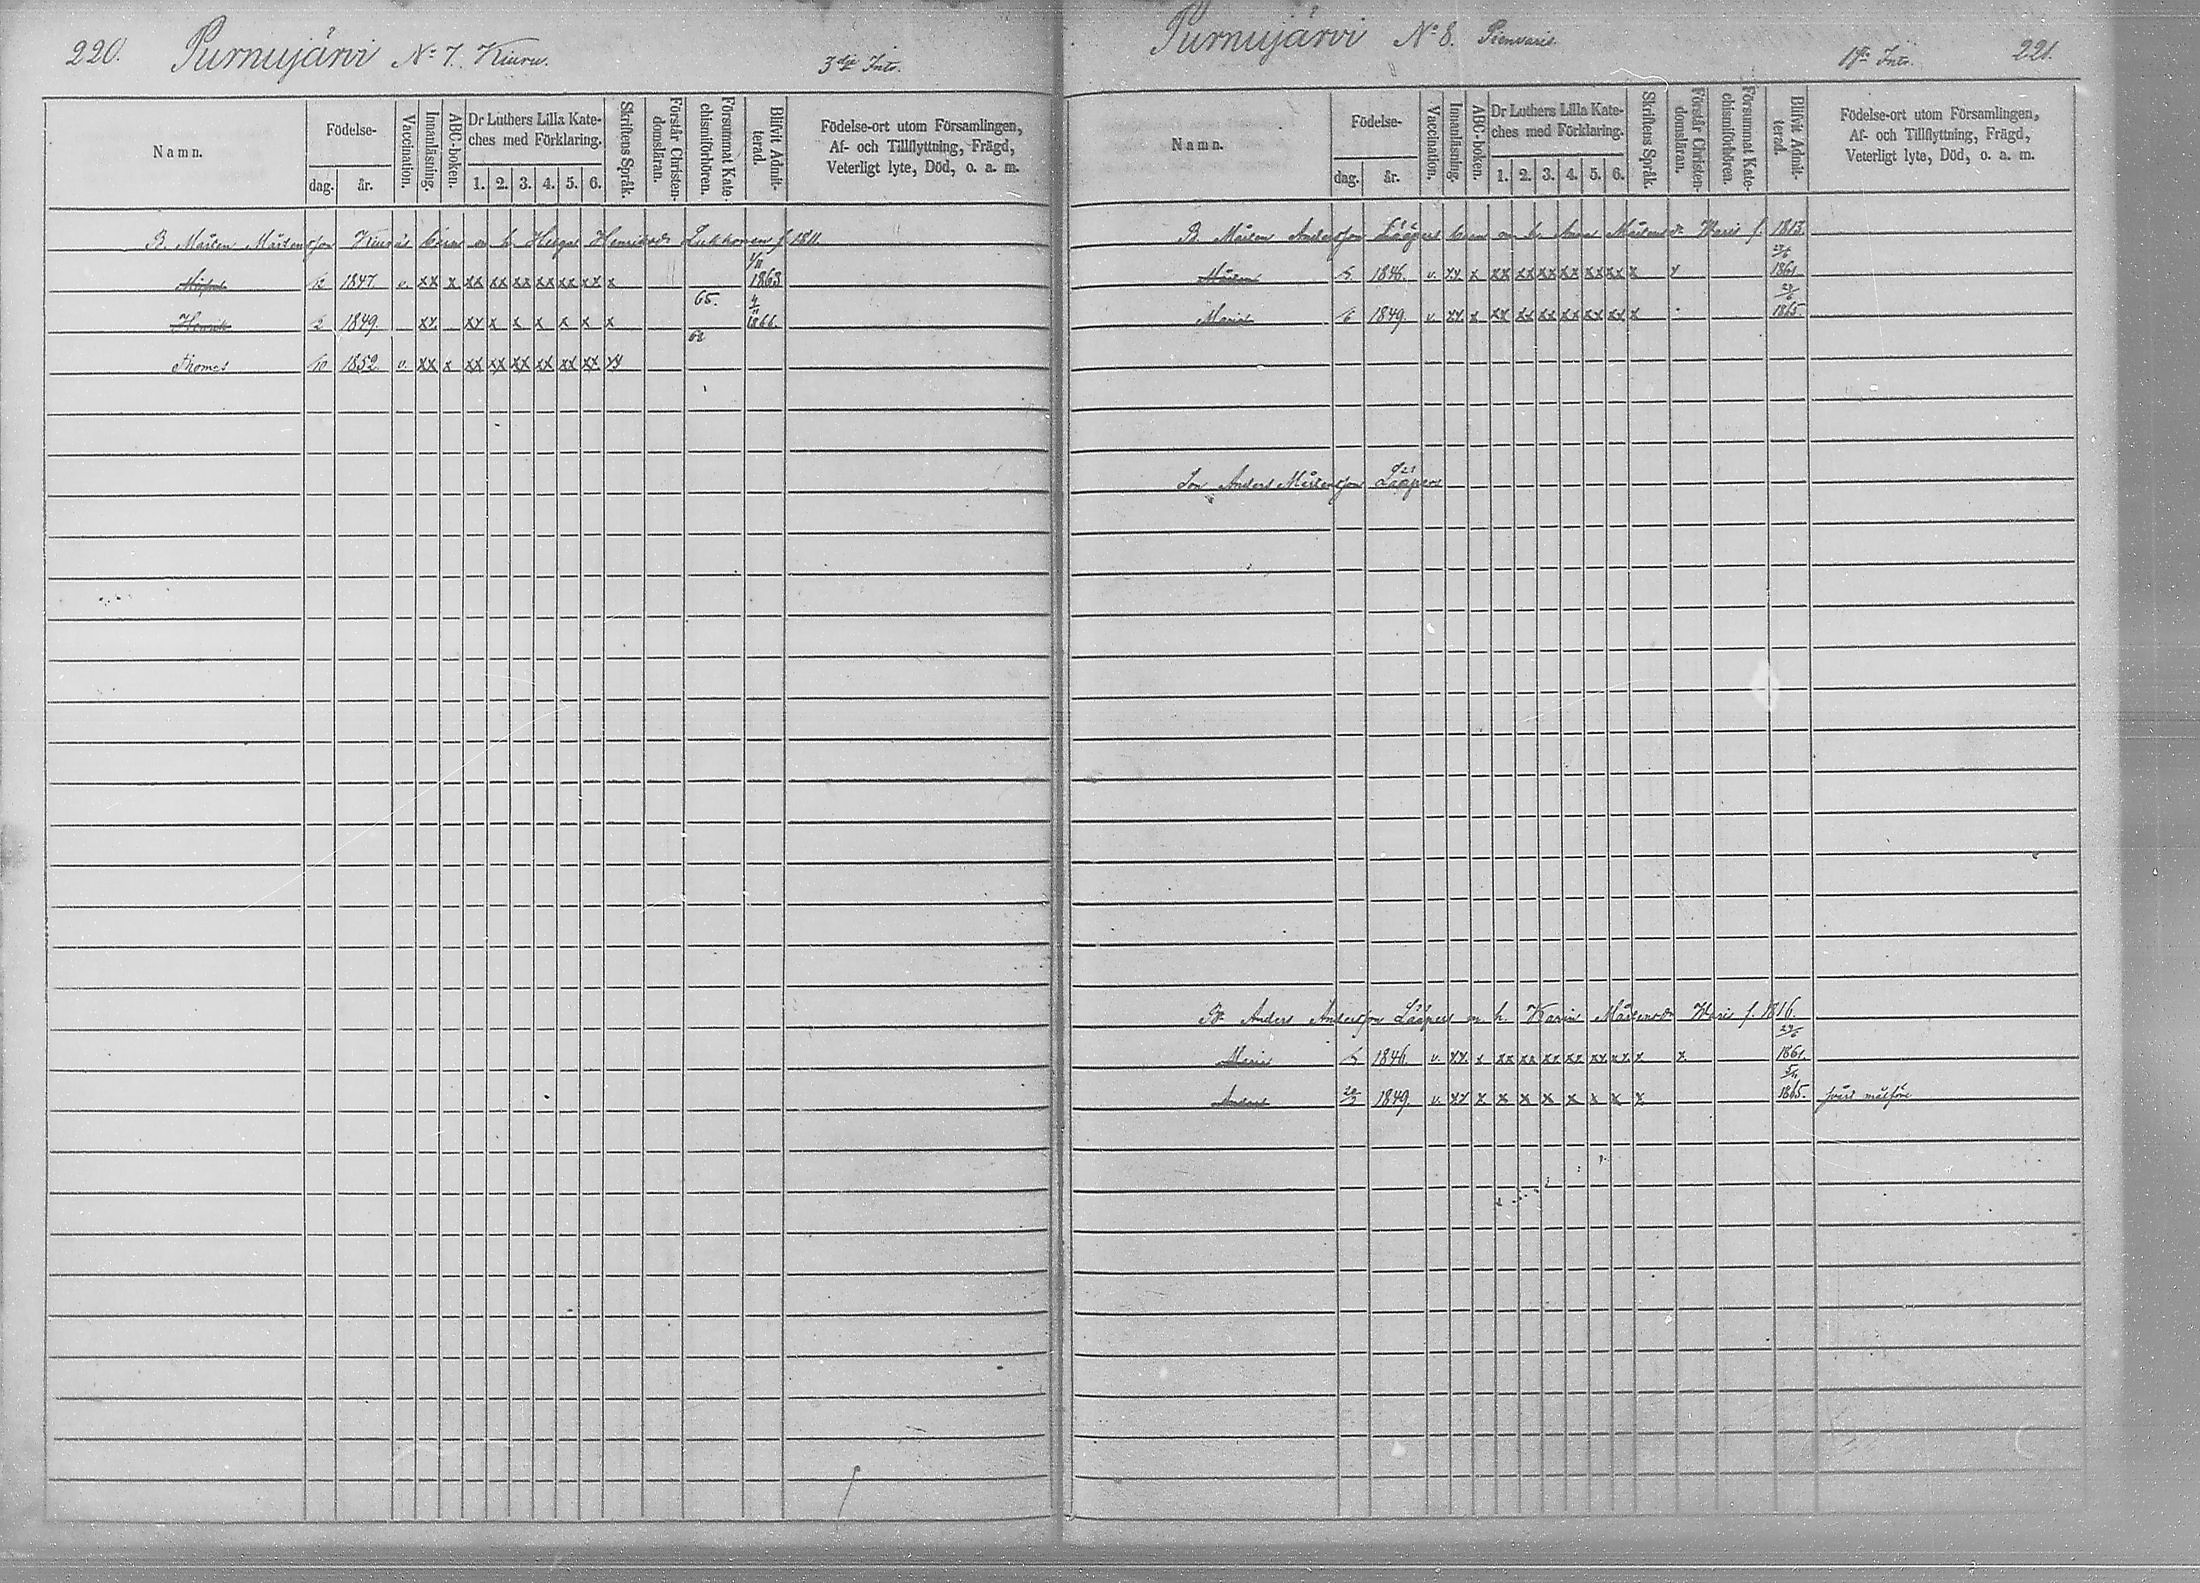 220. Purnujärvi No 7. Kiuru. 3dje Intr.
Namn.
Födelse-
dag. år.
Vaccination.
Innanläsning.
ABC-boken.
Dr Luthers Lilla Kate-
ches med Förklaring.
1. 2. 3. 4. 5. 6.
Skriftens Språk.
Förstår Christen-
domsläran.
Försummat Kate-
chismiförhören.
Blifvit Admit-
terad.
Födelse-ort utom Församlingen,
Af- och Tillflyttning, Frägd,
Veterligt lyte, Död, o. a. m.
B. Mårten Mårtensson Kiurus barn m h. Helga Henriksdr Lukkonen f 1811
1847 v. xx x xx xx xx xx xx xx x 1863
65.
Henrik 2 1849. xx xx x x x x x x 1866.
62
Thomas 10 1852 v. xx x xx xx xx xx xx xx xx
Purnujärvi No 8. 1sta Intr. 221.
Namn.
Födelse-
dag. år.
Vaccination.
Innanläsning.
ABC-boken.
Dr Luthers Lilla Kate-
ches med Förklaring.
1. 2. 3. 4. 5. 6.
Skriftens Språk.
Förstår Christen-
domsläran.
Försummat Kate-
chismiförhören.
Blifvit Admit-
terad.
Födelse-ort utom Församlingen,
Af- och Tillflyttning, Frägd,
Veterligt lyte, Död, o. a. m.
B. Mårten Andersson Lääperi barn m h. Anna Mårtensdr Waris f. 1813.
Mårten 5 1846. v. xx x xx xx xx xx xx xx x x 1861
Maria 6 1849. v. xx x xx xx xx xx xx xx x 1865
Son Anders Mårtensson Lääperi
B. Anders Andersson Lääperi m h. Karin Mårtensdr Waris f. 1816.
Maria 5 1846. v. xx x xx xx xx xx xx xx x x 1861.
Anders 20/3 1849. v. xx x x x x x x x x 1865. svårt målföre